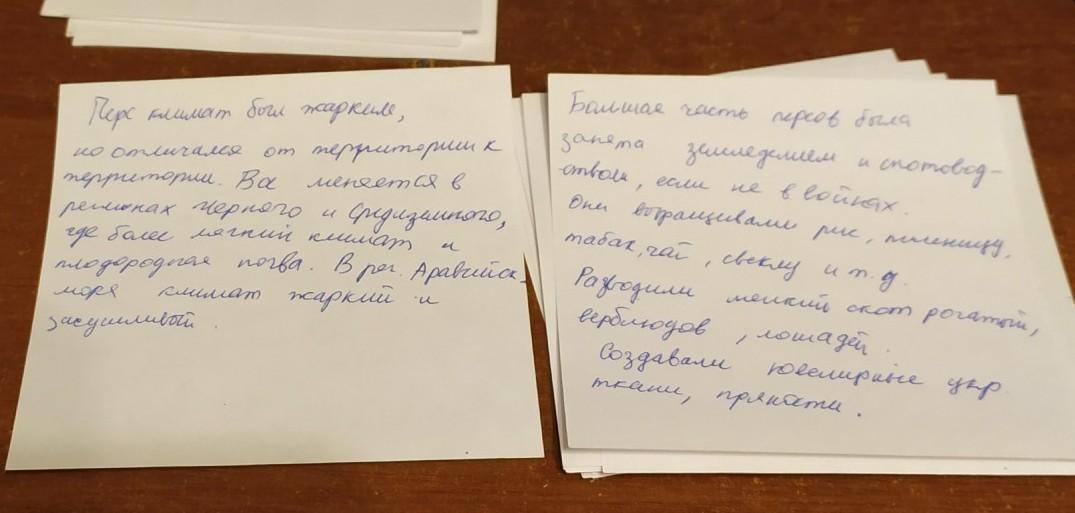 Перс климат был жарким,
но отличался от территории к
территории. Все меняется в
регионах Черного и Средиземного,
где более мягкий климат и
плодородная почва. В рег. Аравийск.
моря климат жаркий и
засушливый.
Большая часть персов была
занята земледелием и скотовод-
ством, если не в войнах.
Они выращивали рис, пшеницу,
табак, чай, свеклу и т.д.
Разводили мелкий скот рогатый,
верблюдов, лошадей.
Создавали ювелирные укр.
ткани, пряности.